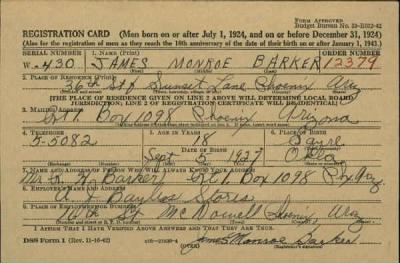 FORM APPROVED
Budget Bureau No. 33-R012-42
REGISTRATION CARD—(Men born on or after July 1, 1924, and on or before December 31, 1924)
(Also for the registration of men as they reach the 18th anniversary of the date of their birth on or after January 1, 1943.)
SERIAL NUMBER 1. NAME (Print) ORDER NUMBER
W-430 JAMES MONROE BARKER 12379
(First) (Middle) (Last)
2. PLACE OF RESIDENCE (Print)
36th St & Sunset Lane Phoenix Ariz
[THE PLACE OF RESIDENCE GIVEN ON LINE 2 ABOVE WILL DETERMINE LOCAL BOARD
JURISDICTION; LINE 2 OF REGISTRATION CERTIFICATE WILL BE IDENTICAL]
3. MAILING ADDRESS
Rt 1. Box 1098 Phoenix Arizona
4. TELEPHONE 5. AGE IN YEARS 6. PLACE OF BIRTH
5-5082 18 Sayre
DATE OF BIRTH
Sept 5
Okla
(Exchange) (Number) (Mo.) (Day) (Yr.) (State or country)
7. NAME AND ADDRESS OF PERSON WHO WILL ALWAYS KNOW YOUR ADDRESS
Barker Rt 1. Box 1098 Phx Ariz
8. EMPLOYER'S NAME AND ADDRESS
A J Bayless Stores
9. PLACE OF EMPLOYMENT OR BUSINESS
16th St McDowell Phoenix, Ariz
I AFFIRM THAT I HAVE VERIFIED ABOVE ANSWERS AND THAT THEY ARE TRUE.
DSS Form 1 (Rev. 11-16-42) James Monroe Barker
(Registrant's signature)